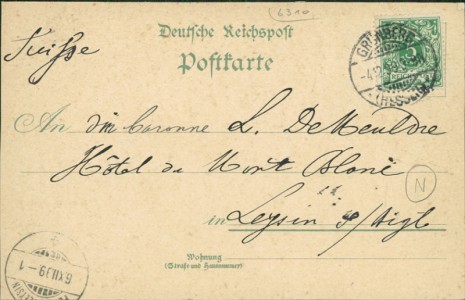 6310
Deutsche Reichspost
Suisse
Postkarte
GRÜNBERG
(HESSEN)
An die baronne L. De Meuldre
Hôtel du Mont Blanc
N
in Leysin s/Aigle
Wohnung
(Straße und Hausnummer)
6.XII.99-1
LEYSIN